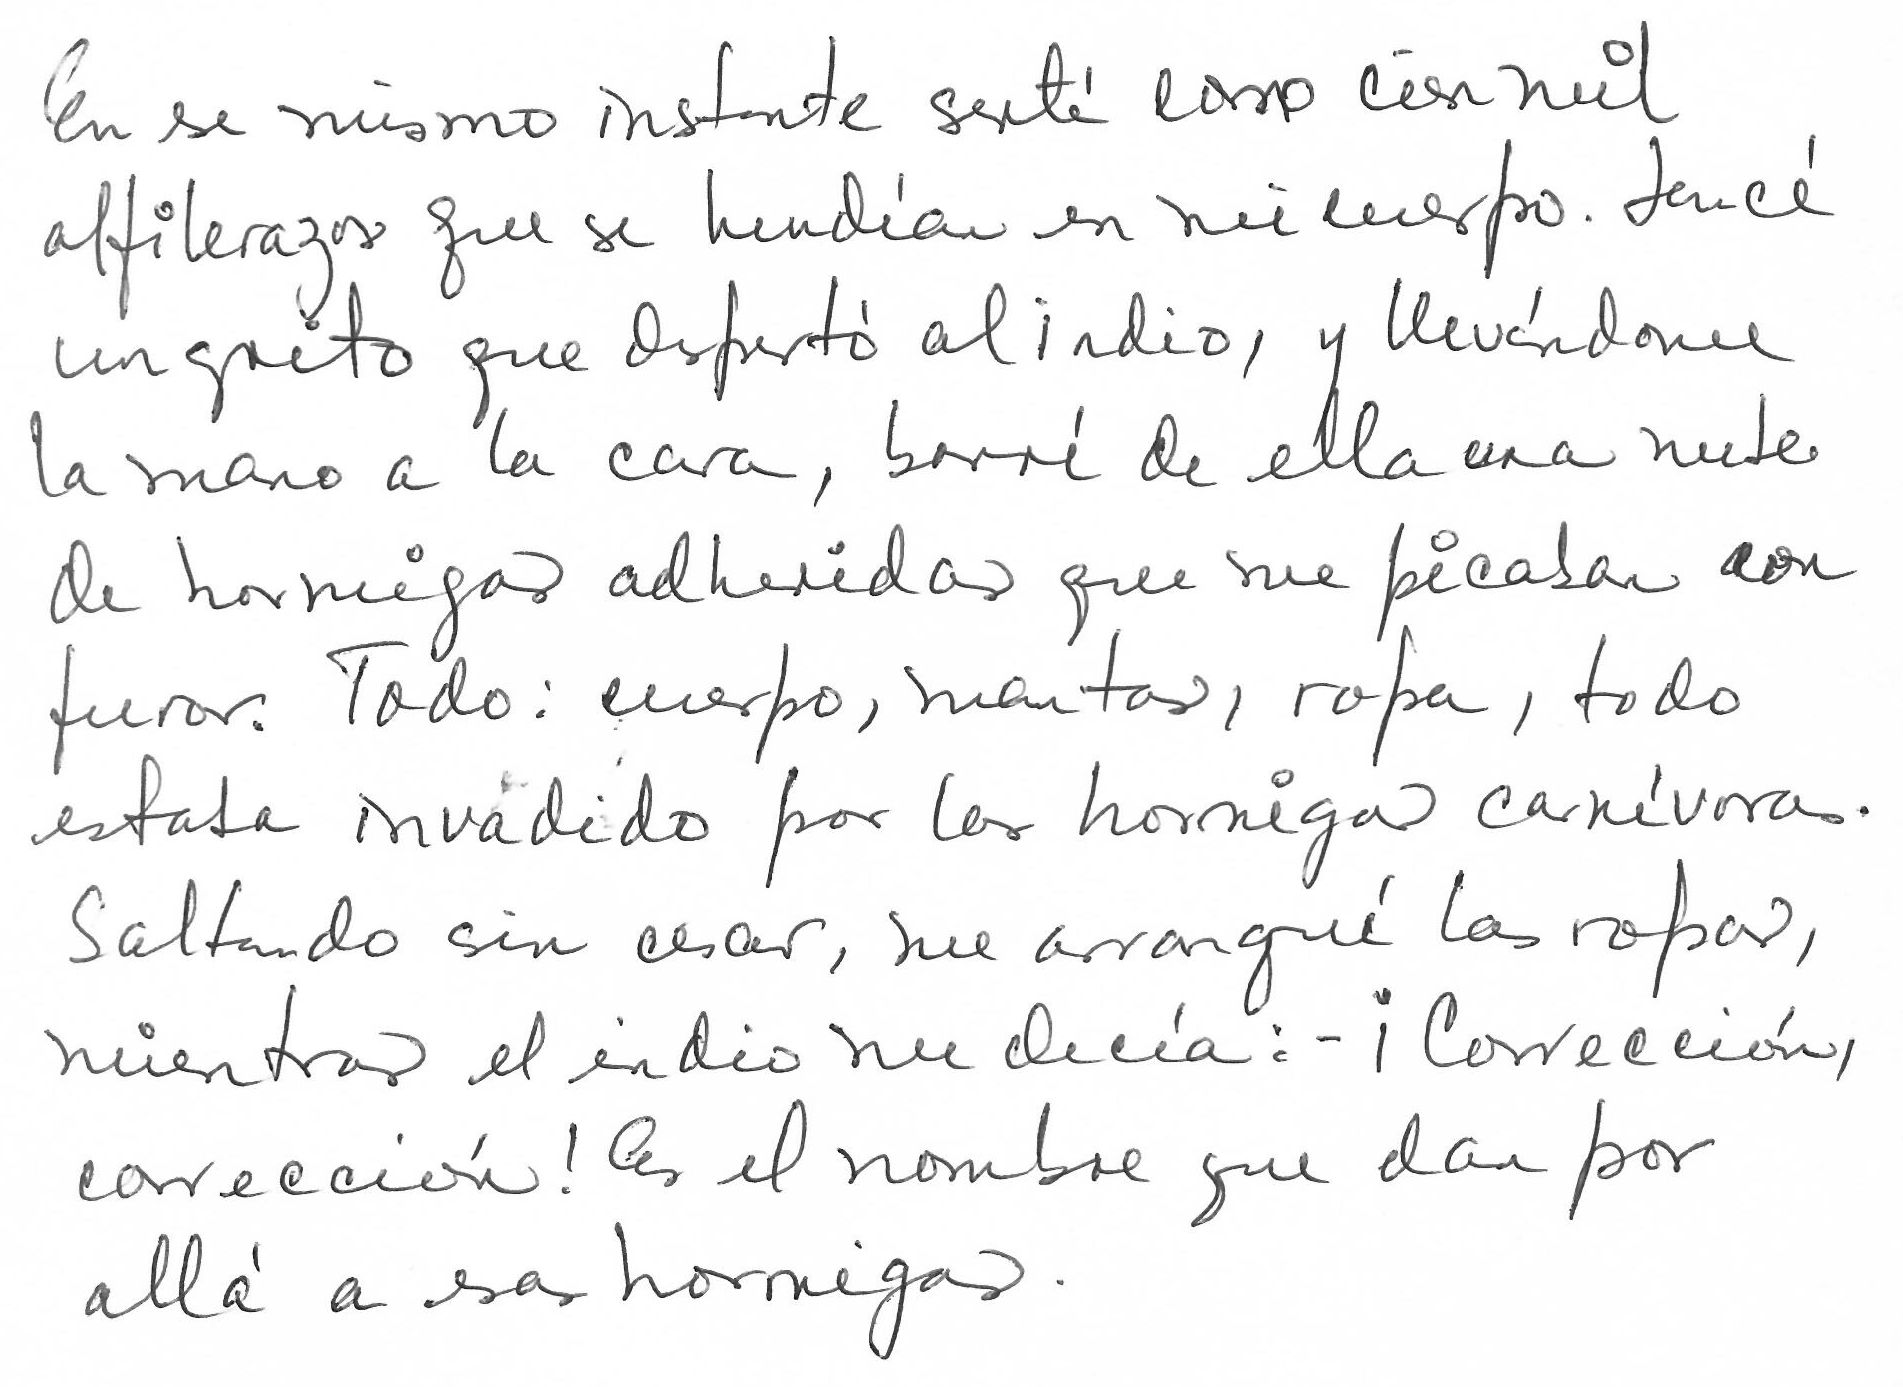 En se mismo instante sentí como cien mil
alfilerazos que se hundían en mi cuerpo. Lancé
un grito que despertó al indio, y llevándome
la mano a la cara, barrí de ella una nube
de hormigas adheridas que me picaban con
furor. Todo: cuerpo, mantas, ropa, todo
estaba invadido por las hormigas carnívoras.
Saltando sin cesar, me arranqué las ropas,
mientras el indio me decía: - ¡Corrección,
corrección! Es el nombre que dan por
allá a esas hormigas.